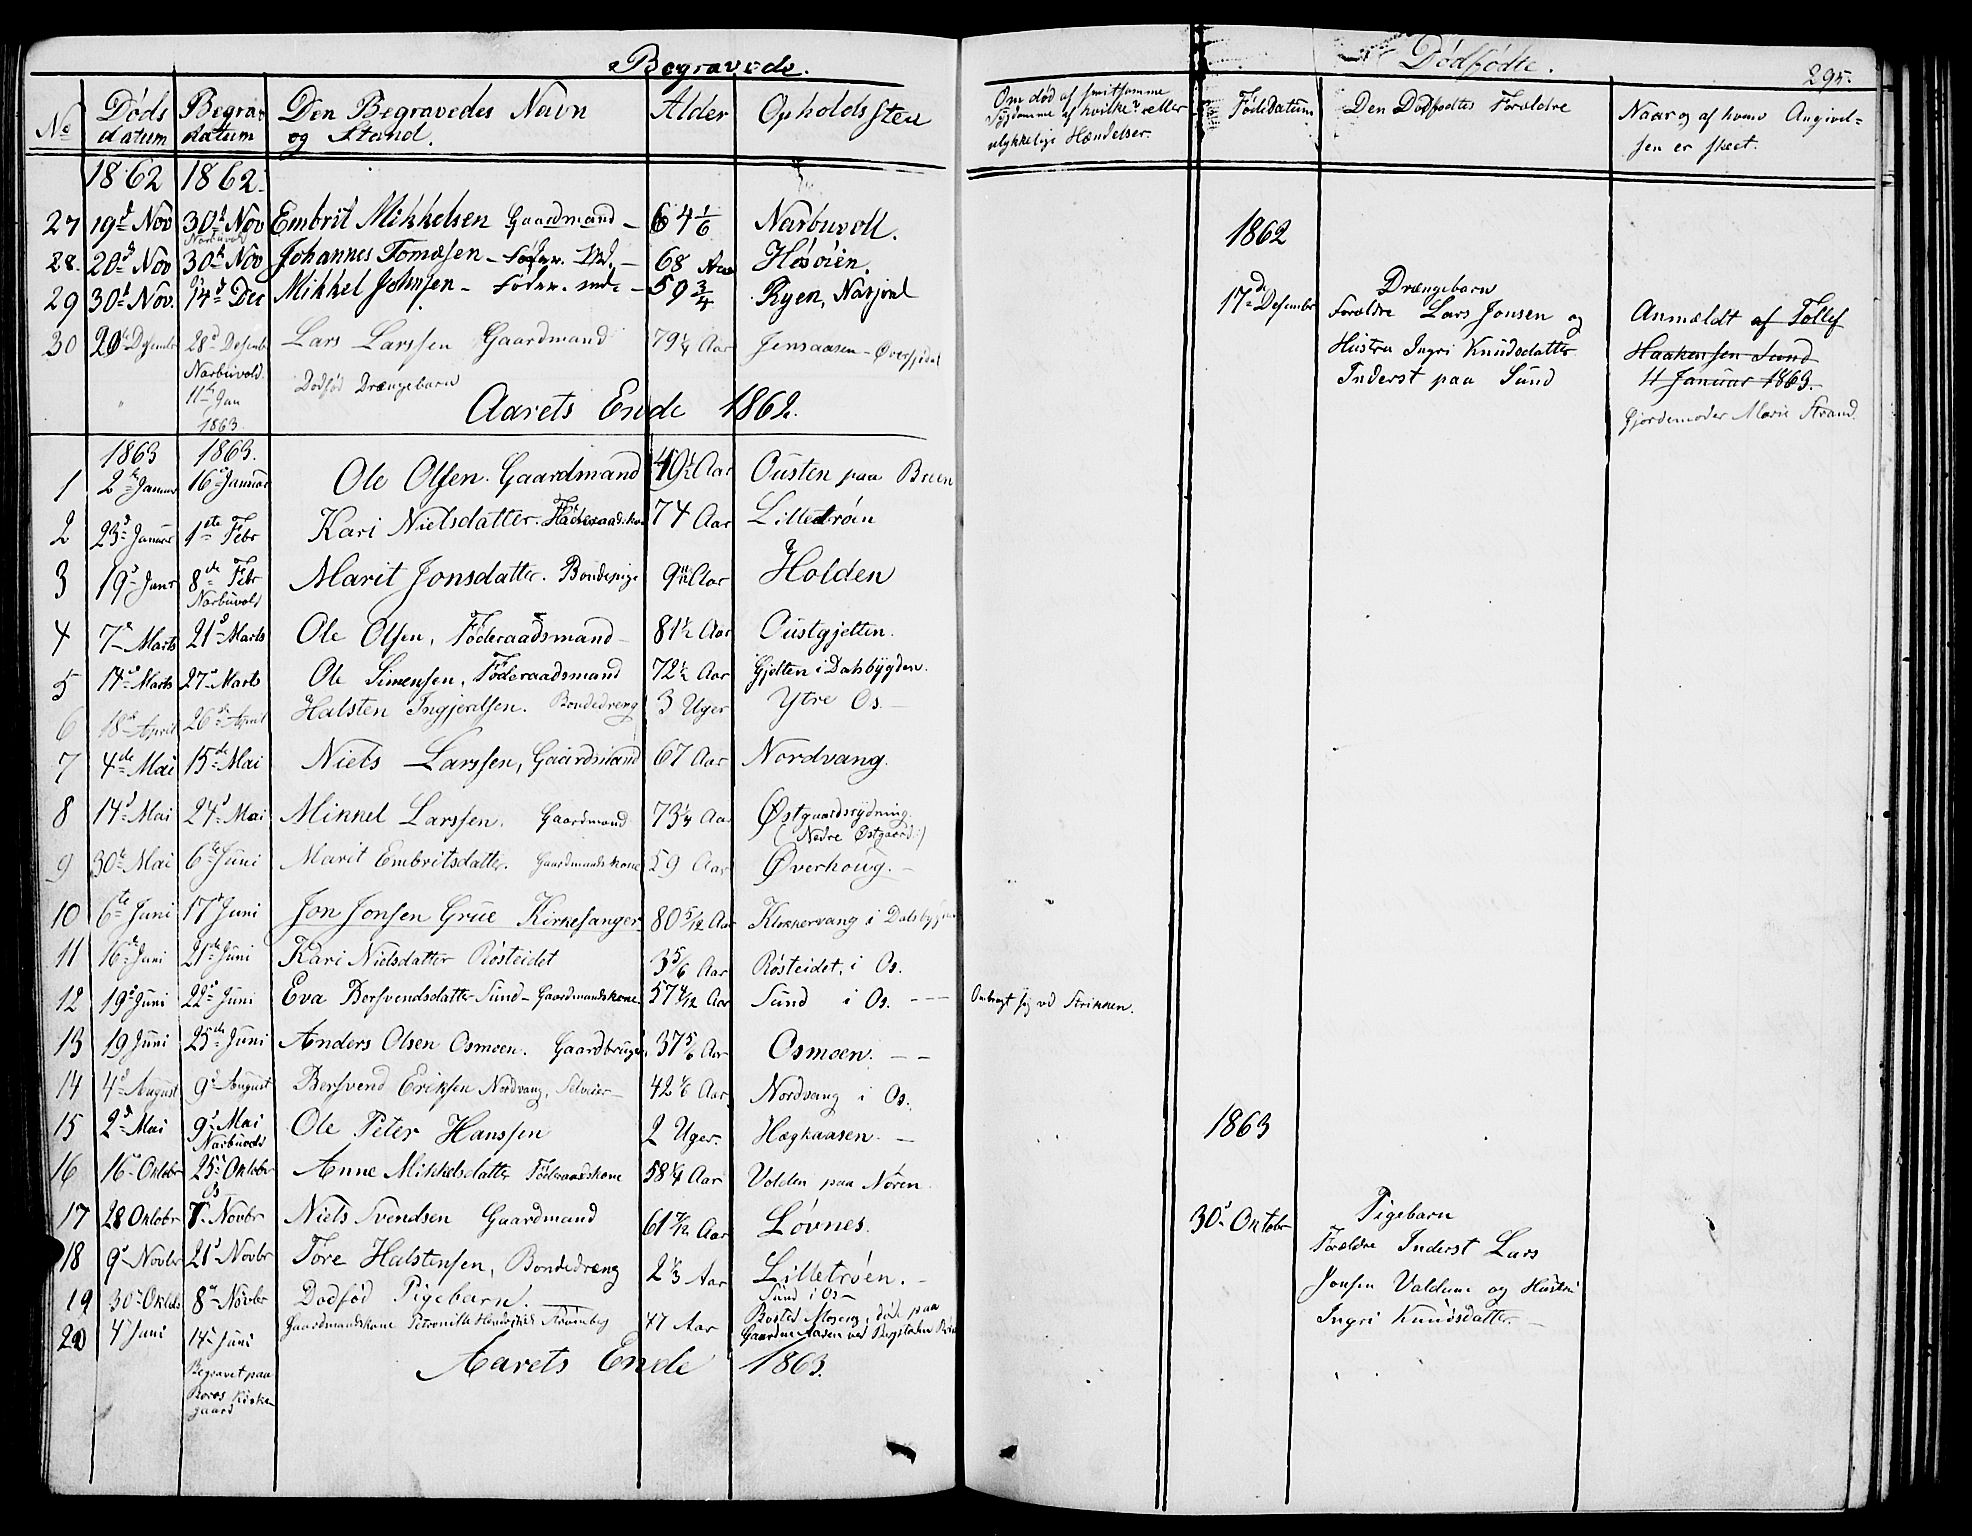 Begravede.
No Døds datum Begra- datum Den Begravedes Navn og Stand. Alder Opholds Sted
1862 1862.
27 19d Nov 30d Nov Embrit Mikkelsen Gaardmand – 64 1/6 Narbuvoll.
Narbuvold
28. 20d Nov 30d Nov Johannes Tomæsen – Føder. Md. – 68 Aar Høsøien.
29 30d Nov. 14d Dec Mikkel Johnsen – Føder. md. – 59 3/4 Ryen, Narjval
30 20de Desember 28d Desemb Lars Larssen Gaardmand 79 1/4 Aar Jensaasen – Øversjødal
Narbuvold.
Dødfød Drængebarn
11te Jan 1863.
Aarets Ende 1862.
1863 1863.
1 2den Januar 16d Januar Ole Olsen. Gaardmand 49 1/2 Aar Ousten paa Breen
2 23d Januar 1ste Febr Kari Nielsdatter. Føderaadskone 74 Aar Lilletrøen
3 19d Janr 8de Febr Marit Jonsdatter. Bondepige 9 Aar Holden
Narbuvold
4 7de Marts 21d Marts Ole Olsen, Føderaadsmand – 81 1/2 Aar Oustgjelten.
5 14d Marts 27d Marts Ole Simensen, Føderaadsmand 72 1/2 Aar Gjelten i Dalsbygden.
6 18de April 26de April Halsten Ingjerdsen. Bondedreng 3 Uger Ytre Os. –
7 4de Mai 15de Mai Niels Larssen, Gaardmand 67 Aar Nordvang.
8 14d Mai 24d Mai Mikkel Larssen. Gaardmand 73 1/4 Aar Østgaardsrydning.
(Nedre Østgaard:)
9 30te Mai 6te Juni Marit Embritsdatter. Gaardmandskone 59 Aar Øverhoug. –
10 6te Juni 17d Juni Jon Jonsen Grue Kirkesanger 80 5/12 Aar Klokkervang i Dalsbygden
11 16de Juni 21de Juni Kari Nielsdatter Røsteidet 3 5/6 Aar Røsteidet, i Os.
12 19d Juni 22d Juni Eva Bersvendsdatter Sund – Gaardmandskone 57 4/12 Aar Sund i Os. – – –
13 19 Juni 25de Juni Anders Olsen Osmoen. Gaardbruger 37 5/6 Aar Osmoen. – –
14 4d August 9d August Bersvend Eriksen Nordvang, Selveier – 42 1/6 Aar. Nordvang i Os.
15 2d Mai 9d Mai Ole Peter Hanssen 2 Uger. Hægkaasen. –
Narbuvold
16 16d Oktobr 25de Oktober Anne Mikkelsdatter Føderaadskone 58 1/4 Aar Volden paa Nøren.
Os
17 28 Oktobr 7. Novbr Niels Svendsen Gaardmand 61 7/12 Aar Løvnes.
18 9d Novbr 21d Novbr Tore Halstensen, Bondedræng 2 1/3 Aar Lilletrøen. –
19 30d Oktob 8de Novbr Dødfød Pigebarn. Sund i Os –
20 4d Juni 14de Juni Gaardmandskone Petronille Strømberg 47 Aar Bosted Moseng, død paa
Gaarden Aasen ved
Begravet paa Roros Kirke- gaard
Aarets Ende 1863.
Dødfødte. 295.
Om død af smitsomme Sygdomme af hvilke? eller ulykkelige Hændelser.
Føde Datum Den Dødfødtes Forældre Naar og af hvem Angivel- sen er skeet.
1862
17de Desember Drængebarn
Forældre Lars Jonsen og
Hustru Ingri Knudsdatter
Inderst paa Sund
Anmeldt af Tollef
Haakensen Sund
11 Januar 1863.
Gjordemoder Marie Strand.
Ombragt sig ved Strikken.
1863
30d Oktobr Pigebarn
Forældre Inderst Lars
Jonsen Valdum og Hustru
Ingri Knudsdatter. –